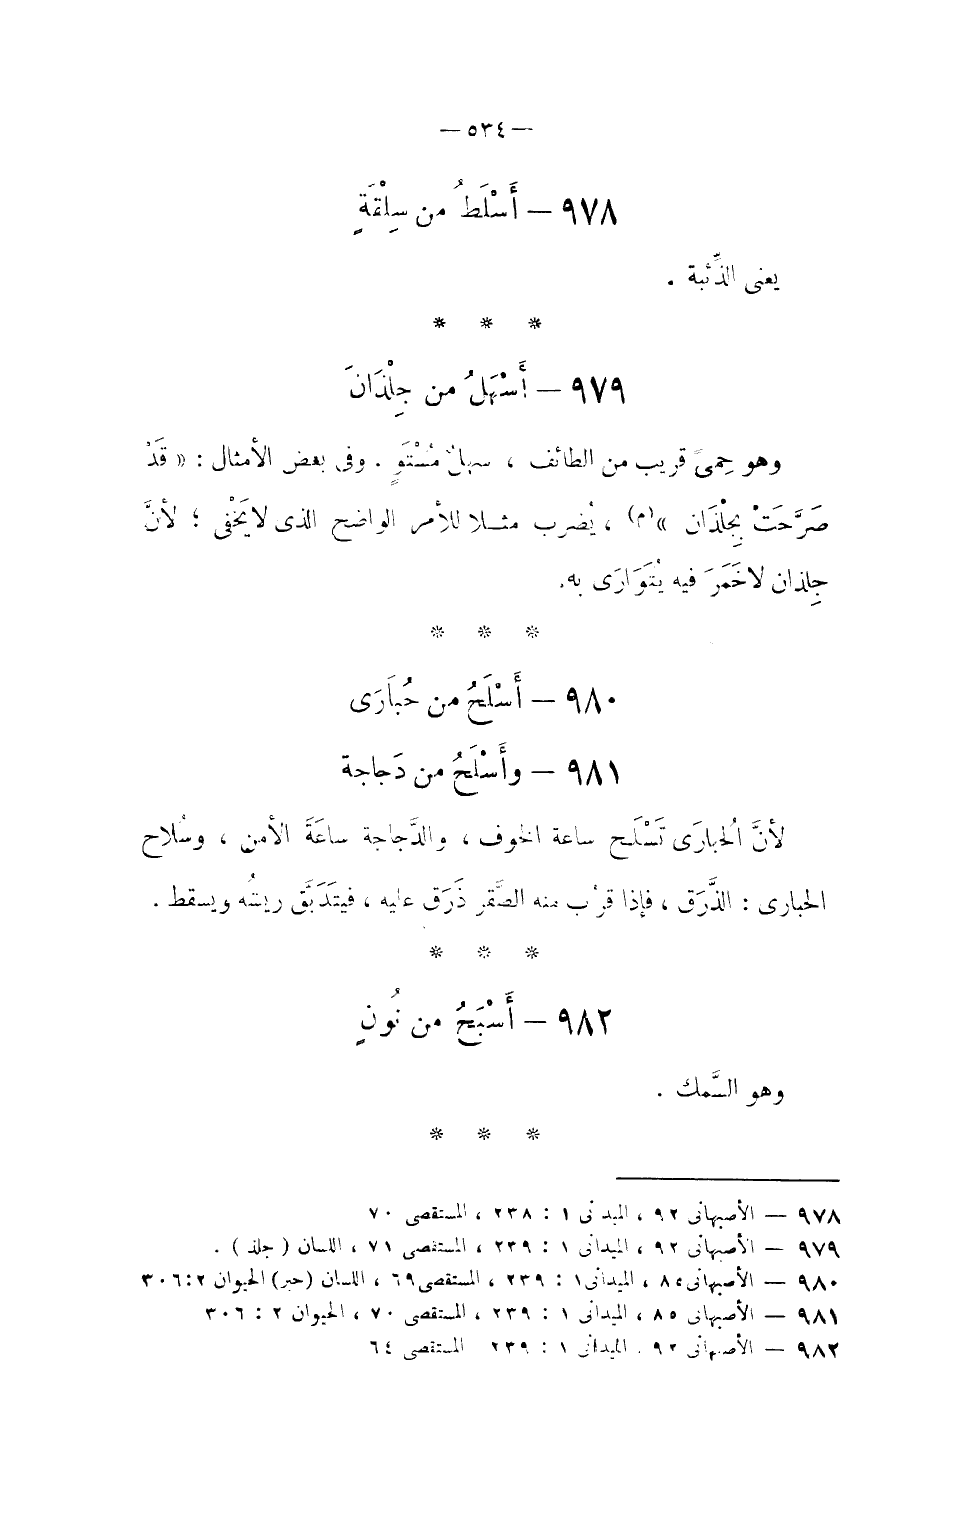 — ٥٣٤ —
٩٧٨ — أَسْلَطُ من سِلِقْةٍ
يعنى الذِّئبة .
* * *
٩٧٩ — أَسْهَلُ من جِلْذَانَ
وهو حِمىً قريب من الطائف ، سهلٌ مُسْتَوٍ . وفى بعض الأمثال : « قَدْ
صَرَّحَتْ بِجِلْذَان »(م) ، يُضرب مثلا للأمر الواضح الذى لايَخْفى ؛ لأنَّ
جِلذان لاخَمَرَ فيه يُتَوَارَى به.
* * *
٩٨٠ — أَسْلَحُ من حُبَارَى
٩٨١ — وأَسْلَحُ من دَجاجة
لأنَّ الُحبارَى تَسْلَح ساعة الخوف ، والدَّجاجة ساعَةَ الأمن ، وسُلاح
الحبارى : الذَّرَق ، فإذا قرُب منه الصَّقر ذَرَق عليه ، فيتَدَبَّق ريشُه ويسقط .
* * *
٩٨٢ — أَسْبَحُ من نُونٍ
وهو السَّمك .
* * *
٩٧٨ — الأصبهانى ٩٢ ، الميدانى ١ : ٢٣٨ ، المستقصى ٧٠
٩٧٩ — الأصبهانى ٩٢ ، الميدانى ١ : ٢٣٩ ، المستقصى ٧١ ، اللسان ( جلذ ) .
٩٨٠ — الأصبهانى ٨٥ ، الميدانى ١ : ٢٣٩ ، المستقصى ٦٩ ، اللسان (حبر) الحيوان ٢ : ٣٠٦
٩٨١ — الأصبهانى ٨٥ ، الميدانى ١ : ٢٣٩ ، المستقصى ٧٠ ، الحيوان ٢ : ٣٠٦
٩٨٢ — الأصبهانى ٩٢ . الميدانى ١ : ٢٣٩ المستقصى ٦٤